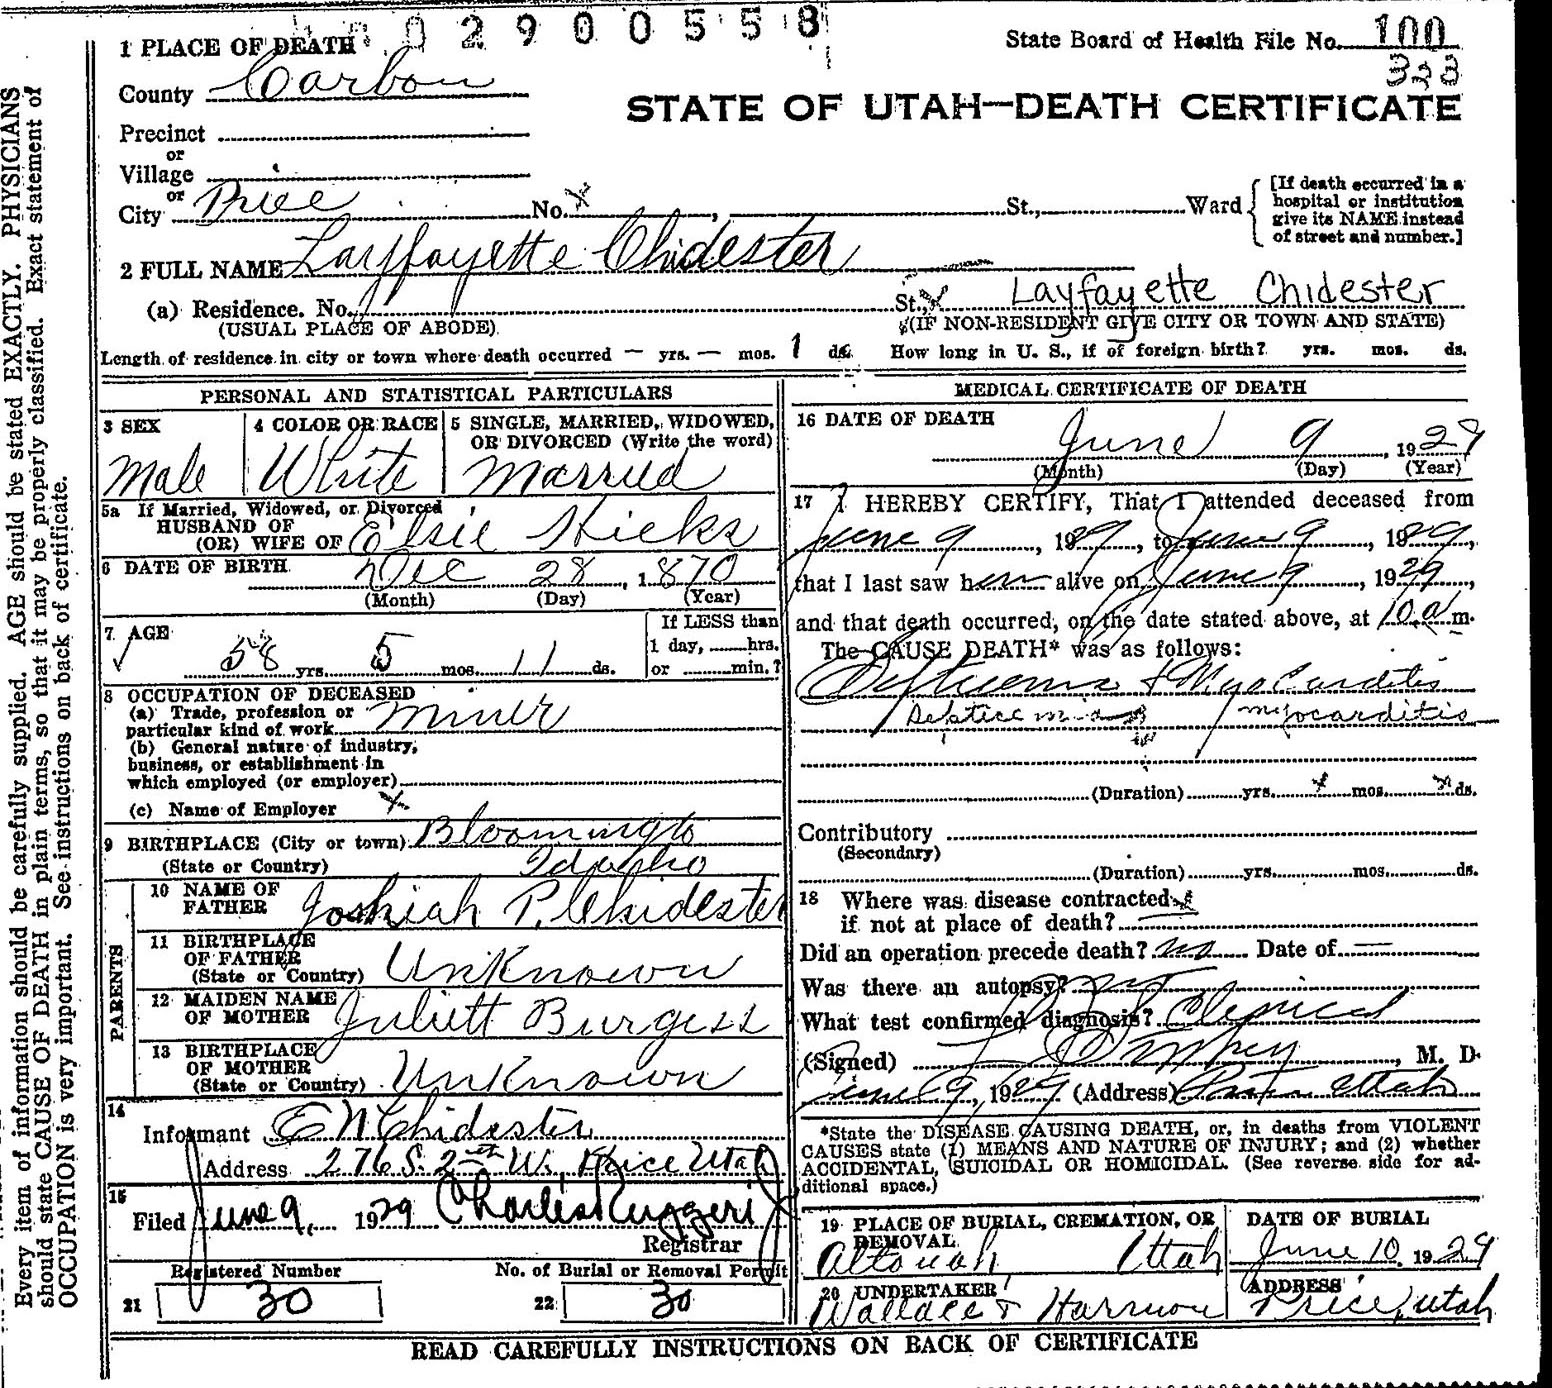 0 2 9 0 0 5 5 8
State Board of Health File No. 100
323
1 PLACE OF DEATH
County Carbon
STATE OF UTAH—DEATH CERTIFICATE
Precinct
or
Village
or
City Price No. x St., Ward
[If death occurred in a
hospital or institution
give its NAME instead
of street and number.]
2 FULL NAME Layffayette Chidester
(a) Residence. No. St., x Layfayette Chidester
(USUAL PLACE OF ABODE) (IF NON-RESIDENT GIVE CITY OR TOWN AND STATE)
Length of residence in city or town where death occurred — yrs. — mos. 1 ds. How long in U. S., if of foreign birth? yrs. mos. ds.
PERSONAL AND STATISTICAL PARTICULARS
3 SEX 4 COLOR OR RACE 5 SINGLE, MARRIED, WIDOWED,
OR DIVORCED (Write the word)
Male White Married
5a If Married, Widowed, or Divorced
HUSBAND OF
(OR) WIFE OF Elsie Hicks
6 DATE OF BIRTH Dec 28, 1870
(Month) (Day) (Year)
7 AGE
58 yrs. 5 mos. 11 ds.
If LESS than
1 day, ......hrs.
or ........min.?
8 OCCUPATION OF DECEASED
(a) Trade, profession or
particular kind of work Miner
(b) General nature of industry,
business, or establishment in
which employed (or employer)
(c) Name of Employer x
9 BIRTHPLACE (City or town) Bloomingto
(State or Country) Idaho
PARENTS
10 NAME OF
FATHER Joshiah P. Chidester
11 BIRTHPLACE
OF FATHER
(State or Country) Unknown
12 MAIDEN NAME
OF MOTHER Juliett Burgess
13 BIRTHPLACE
OF MOTHER
(State or Country) Unknown
14
Informant E N Chidester
Address 276 S. 2nd W. Price Utah
15
Filed June 9, 1929 Charles Ruggeri
Registrar
Registered Number No. of Burial or Removal Permit
21 30 22 30
MEDICAL CERTIFICATE OF DEATH
16 DATE OF DEATH
June 9, 1929
(Month) (Day) (Year)
17 I HEREBY CERTIFY, That I attended deceased from
June 9, 1929, to June 9, 1929,
that I last saw him alive on June 9, 1929,
and that death occurred, on the date stated above, at 10 a m.
The CAUSE DEATH* was as follows:
Septicemia & Myocarditis
Septicemia Myocarditis
(Duration) yrs. x mos. x ds.
Contributory
(Secondary)
(Duration) yrs. mos. ds.
18 Where was disease contracted x
if not at place of death?
Did an operation precede death? no Date of —
Was there an autopsy? no
What test confirmed diagnosis? Clinical
(Signed) , M. D.
June 9, 1929 (Address) Utah
*State the DISEASE CAUSING DEATH, or, in deaths from VIOLENT
CAUSES state (1) MEANS AND NATURE OF INJURY; and (2) whether
ACCIDENTAL, SUICIDAL OR HOMICIDAL. (See reverse side for ad-
ditional space.)
19 PLACE OF BURIAL, CREMATION, OR
REMOVAL
Altonah, Utah
DATE OF BURIAL
June 10, 1929
20 UNDERTAKER
Wallace & Harmon
ADDRESS
Price, Utah
READ CAREFULLY INSTRUCTIONS ON BACK OF CERTIFICATE
Every item of information should be carefully supplied. AGE should be stated EXACTLY. PHYSICIANS
should state CAUSE OF DEATH in plain terms, so that it may be properly classified. Exact statement of
OCCUPATION is very important. See instructions on back of certificate.